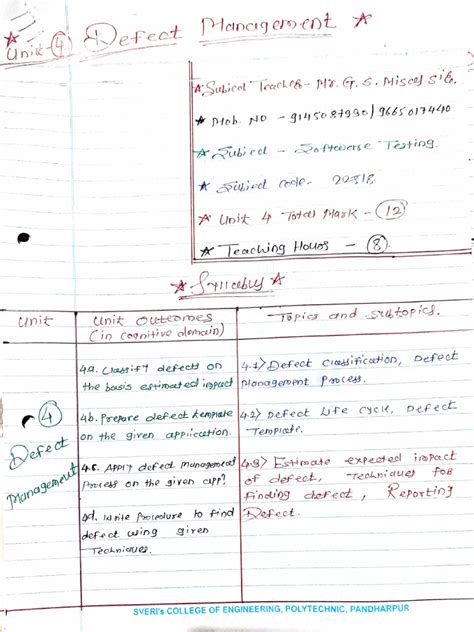 Unit-4 Defect Management
Subject Teacher - Mr. G. S. Miscal Sir.
Mob. No - 9145087930/9665017440
Subject - Software Testing.
Subject code - 22518
Unit 4 Total Mark - 12
Teaching Hours - 8
Syllabus
Unit
Unit outcomes
(in cognitive domain)
Topics and subtopics.
4
Defect
Management
4a. Classify defects on
the basis estimated impact
4.1) Defect Classification, Defect
Management Process.
4b. Prepare defect template
on the given application.
4.2) Defect Life Cycle, Defect
Template.
4c. Apply defect management
Process on the given app?
4.3) Estimate expected impact
of defect, Techniques for
finding defect, Reporting
Defect.
4d. Write Procedure to find
defect using given
Techniques.
SVERI's COLLEGE OF ENGINEERING, POLYTECHNIC, PANDHARPUR